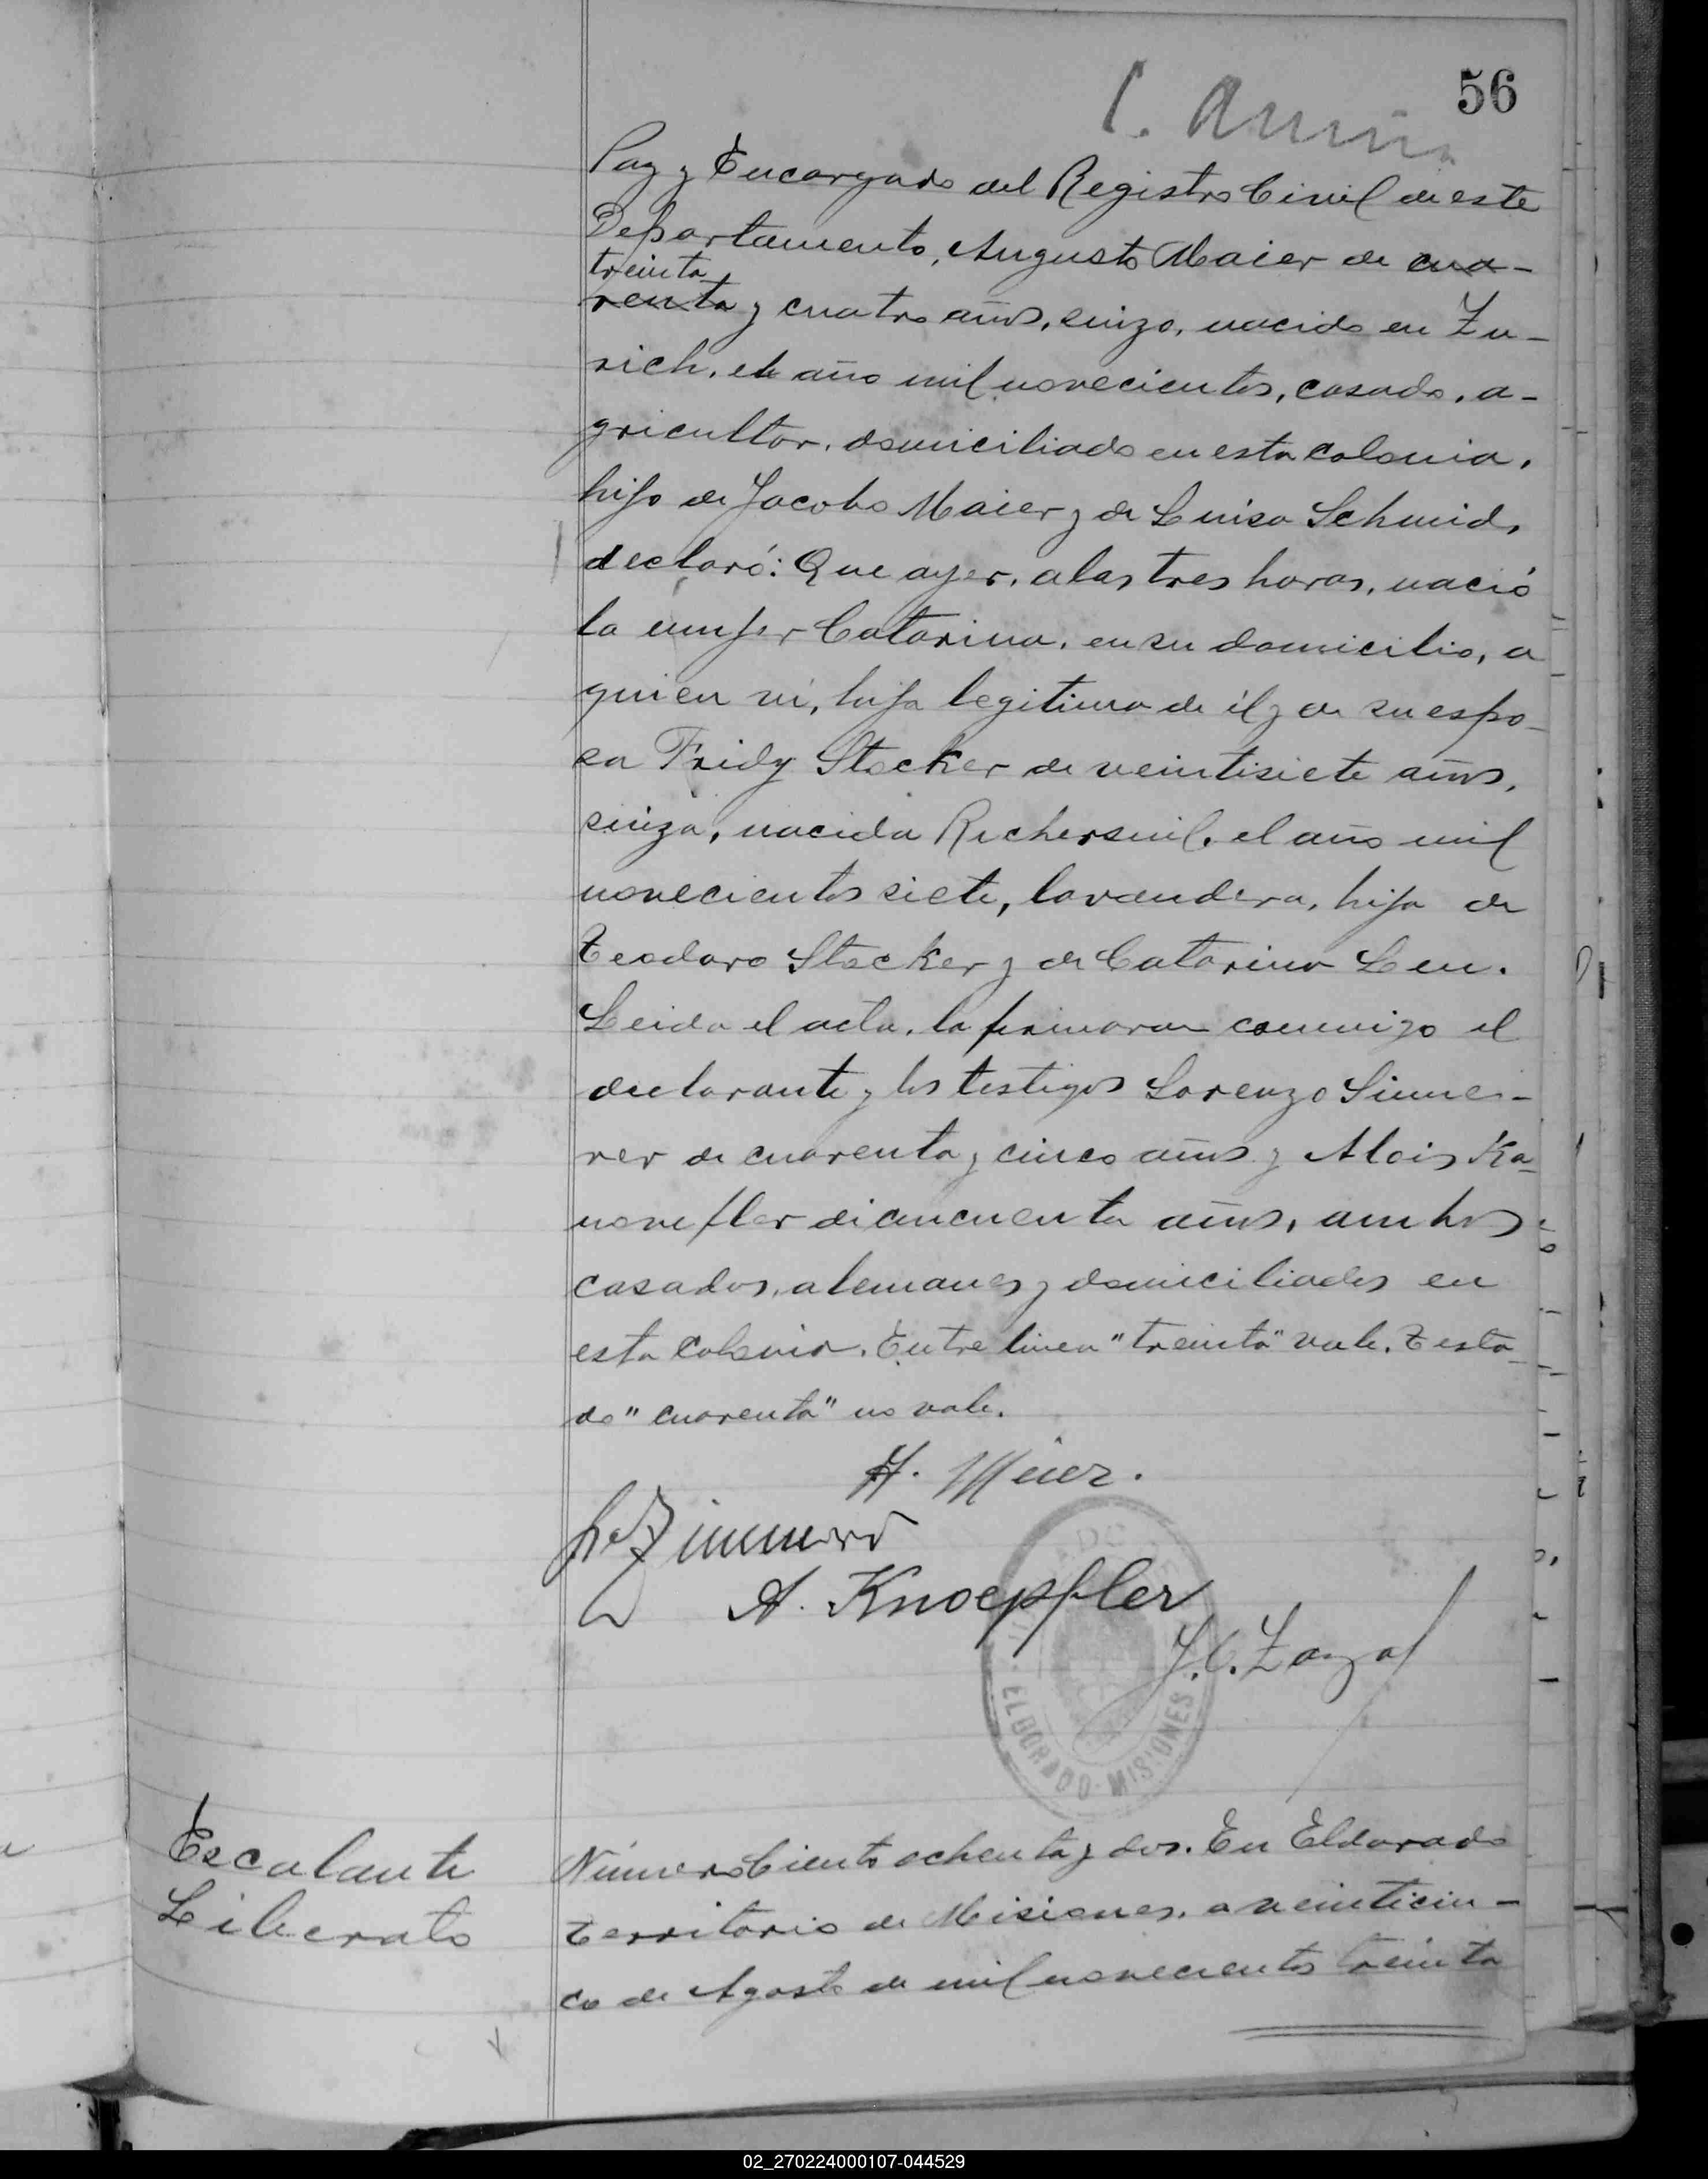 56
Paz y Encargado del Registro Civil de este
Departamento, Augusto Maier de cua-
treinta
renta y cuatro años, suizo, nacido en Zu-
rich, el año mil novecientos, casado, a-
gricultor, domiciliado en esta colonia,
hijo de Jacobo Maier y de Luisa Schmid,
declaró: Que ayer, a las tres horas, nació
la mujer Catarina, en su domicilio, a
quien vi, hija legitima de él y de su espo-
sa Fridy Stocker de veintisiete años,
suiza, nacida Richerswil, el año mil
novecientos siete, lavandera, hija de
Teodoro Stocker y de Catarina Leu.
Leida el acta, la firmaron conmigo el
declarante y los testigos Lorenzo Simme-
rer de cuarenta y cinco años y Alois Ka-
nonefler de cincuenta años, ambos
casados, alemanes y domiciliados en
esta colonia. Entre linea "treinta" vale. Testa-
do "cuarenta" no vale.
A. Meier.
A. Knoepfler
J. C. Zayal
ELDORADO - MISIONES
Escalante
Liberato
Número Ciento ochenta y dos. En Eldorado
Territorio de Misiones, a veinticin-
co de Agosto de mil novecientos treinta
02_270224000107-044529